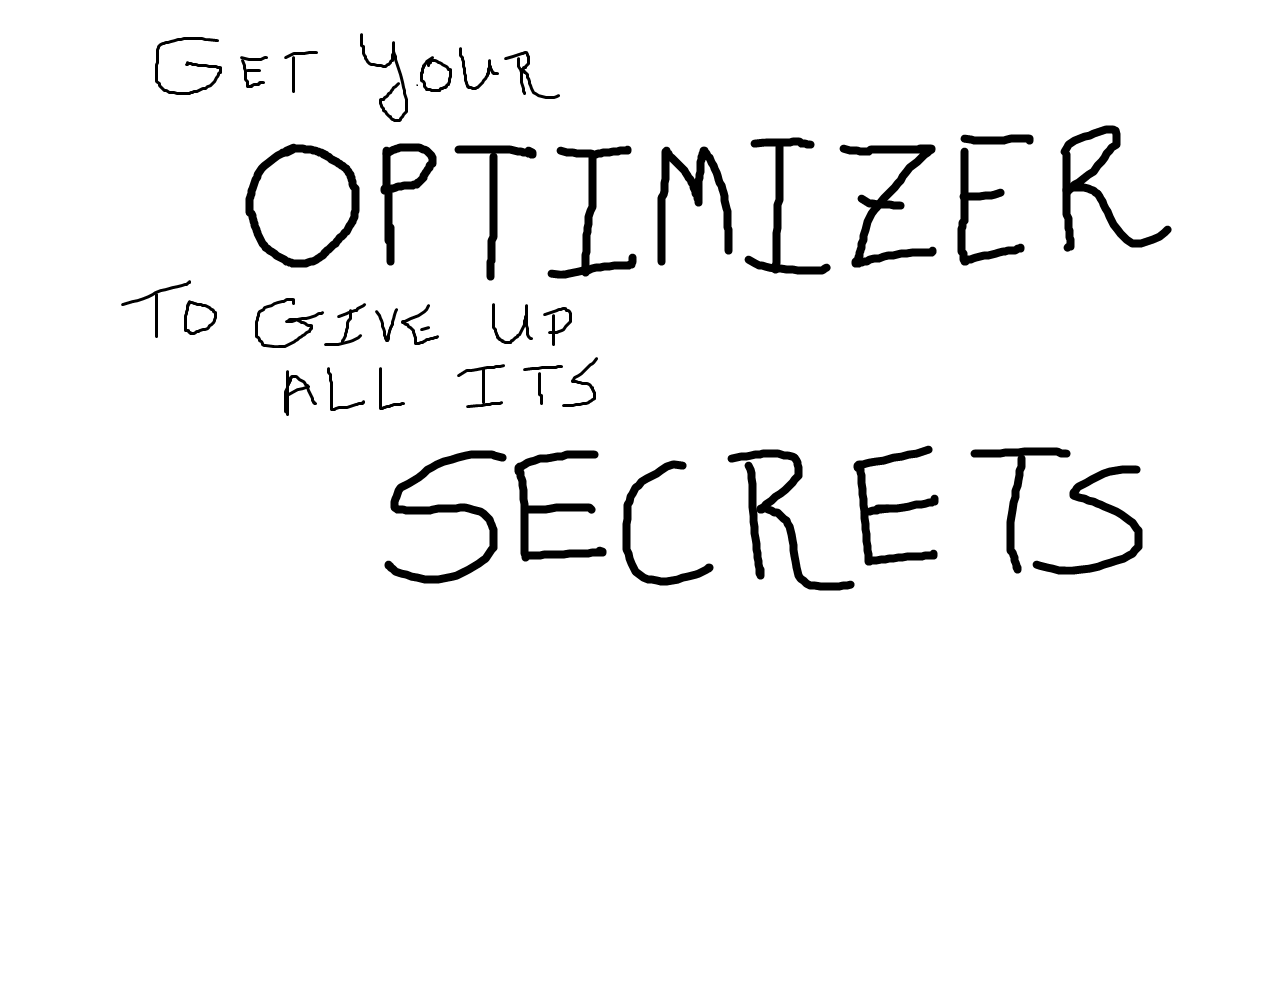 GET YOUR
OPTIMIZER
TO GIVE UP
ALL ITS
SECRETS